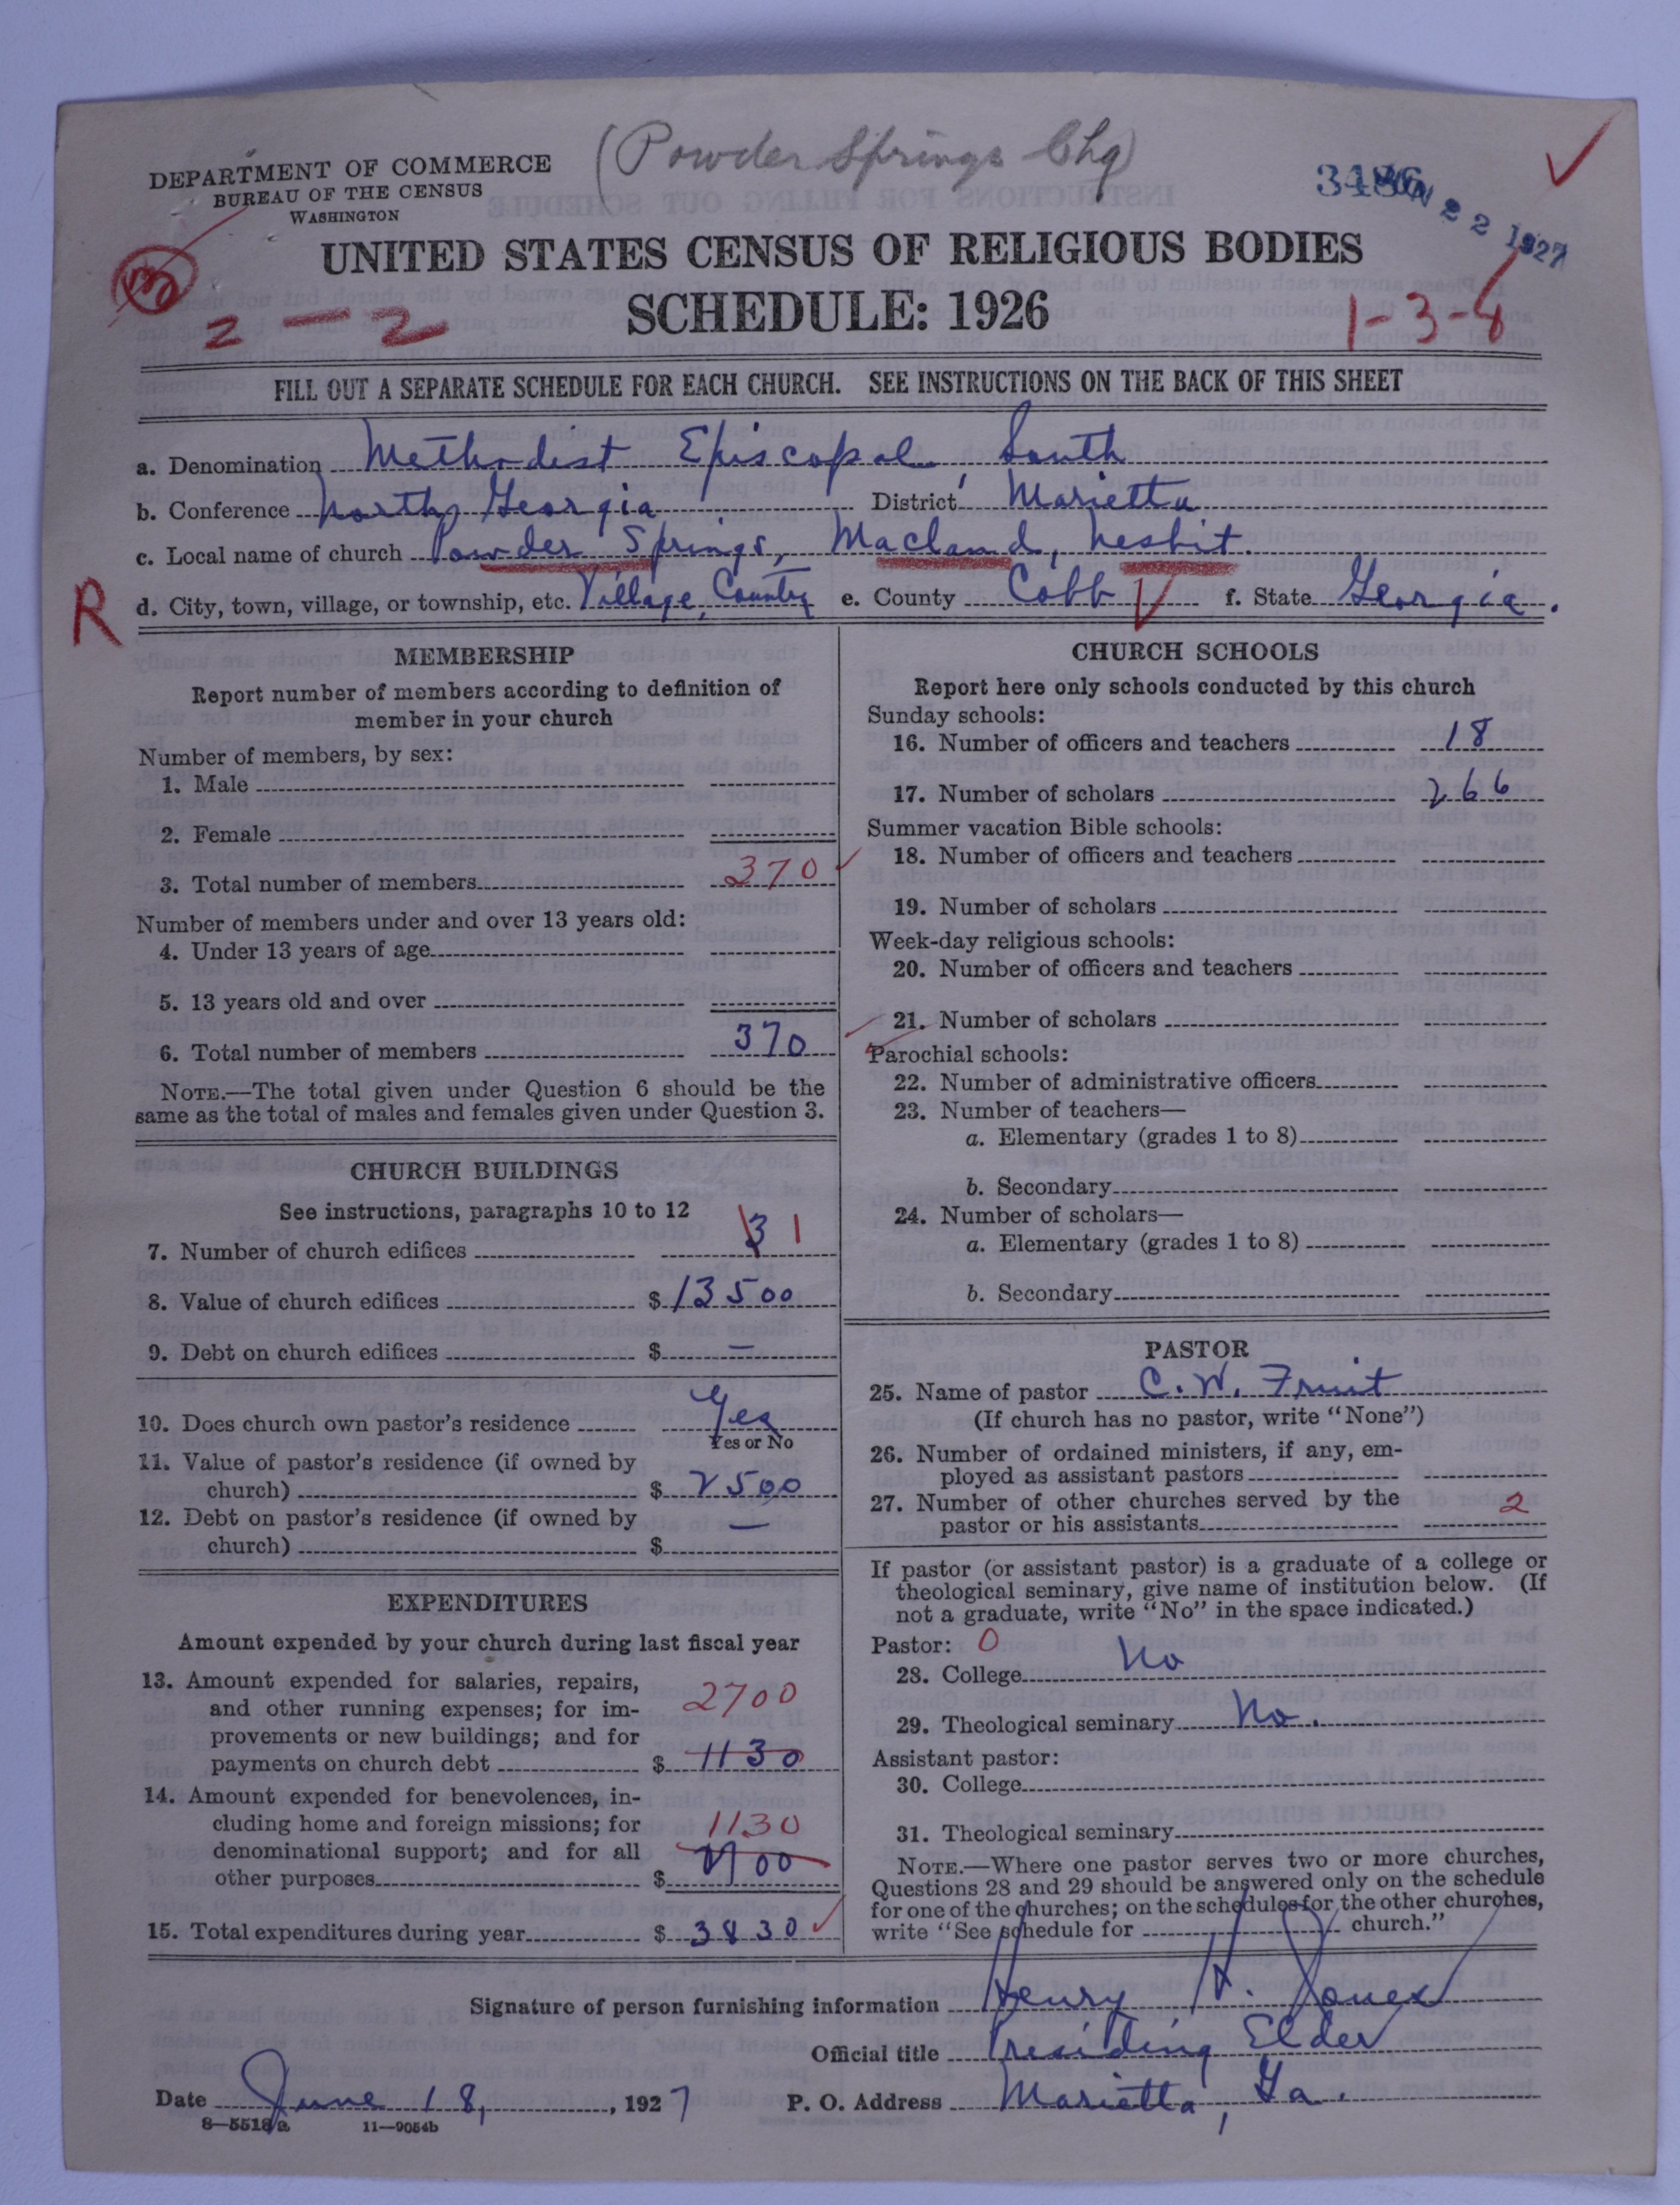 (Powder Springs Chg)
DEPARTMENT OF COMMERCE
BUREAU OF THE CENSUS
WASHINGTON
22 1927
UNITED STATES CENSUS OF RELIGIOUS BODIES
SCHEDULE: 1926
2-2
1-3-
FILL OUT A SEPARATE SCHEDULE FOR EACH CHURCH. SEE INSTRUCTIONS ON THE BACK OF THIS SHEET
a. Denomination Methodist Episcopal, South
b. Conference North Georgia District Marietta
c. Local name of church Powder Springs, Macland, Nesbit.
R d. City, town, village, or township, etc. Village, Country e. County Cobb f. State Georgia.
MEMBERSHIP
Report number of members according to definition of
member in your church
Number of members, by sex:
1. Male
2. Female
3. Total number of members 370
Number of members under and over 13 years old:
4. Under 13 years of age
5. 13 years old and over
6. Total number of members 370
NOTE.—The total given under Question 6 should be the
same as the total of males and females given under Question 3.
CHURCH BUILDINGS
See instructions, paragraphs 10 to 12
7. Number of church edifices 3 1
8. Value of church edifices $ 13500
9. Debt on church edifices $ —
10. Does church own pastor's residence Yes
Yes or No
11. Value of pastor's residence (if owned by
church) $ 2500
12. Debt on pastor's residence (if owned by
church) $ —
EXPENDITURES
Amount expended by your church during last fiscal year
13. Amount expended for salaries, repairs,
and other running expenses; for im-
provements or new buildings; and for
payments on church debt 2700 $ 1130
14. Amount expended for benevolences, in-
cluding home and foreign missions; for
denominational support; and for all
other purposes 1130 $ 2700
15. Total expenditures during year $ 3830
CHURCH SCHOOLS
Report here only schools conducted by this church
Sunday schools:
16. Number of officers and teachers 18
17. Number of scholars 266
Summer vacation Bible schools:
18. Number of officers and teachers
19. Number of scholars
Week-day religious schools:
20. Number of officers and teachers
21. Number of scholars
Parochial schools:
22. Number of administrative officers
23. Number of teachers—
a. Elementary (grades 1 to 8)
b. Secondary
24. Number of scholars—
a. Elementary (grades 1 to 8)
b. Secondary
PASTOR
25. Name of pastor C. W. Fruit
(If church has no pastor, write "None")
26. Number of ordained ministers, if any, em-
ployed as assistant pastors
27. Number of other churches served by the
pastor or his assistants 2
If pastor (or assistant pastor) is a graduate of a college or
theological seminary, give name of institution below. (If
not a graduate, write "No" in the space indicated.)
Pastor: 0
28. College No
29. Theological seminary No.
Assistant pastor:
30. College
31. Theological seminary
NOTE.—Where one pastor serves two or more churches,
Questions 28 and 29 should be answered only on the schedule
for one of the churches; on the schedules for the other churches,
write "See schedule for church."
Signature of person furnishing information Henry H. Jones
Official title Presiding Elder
Date June 18, 1927 P. O. Address Marietta, Ga.
8—5518a 11—9054b